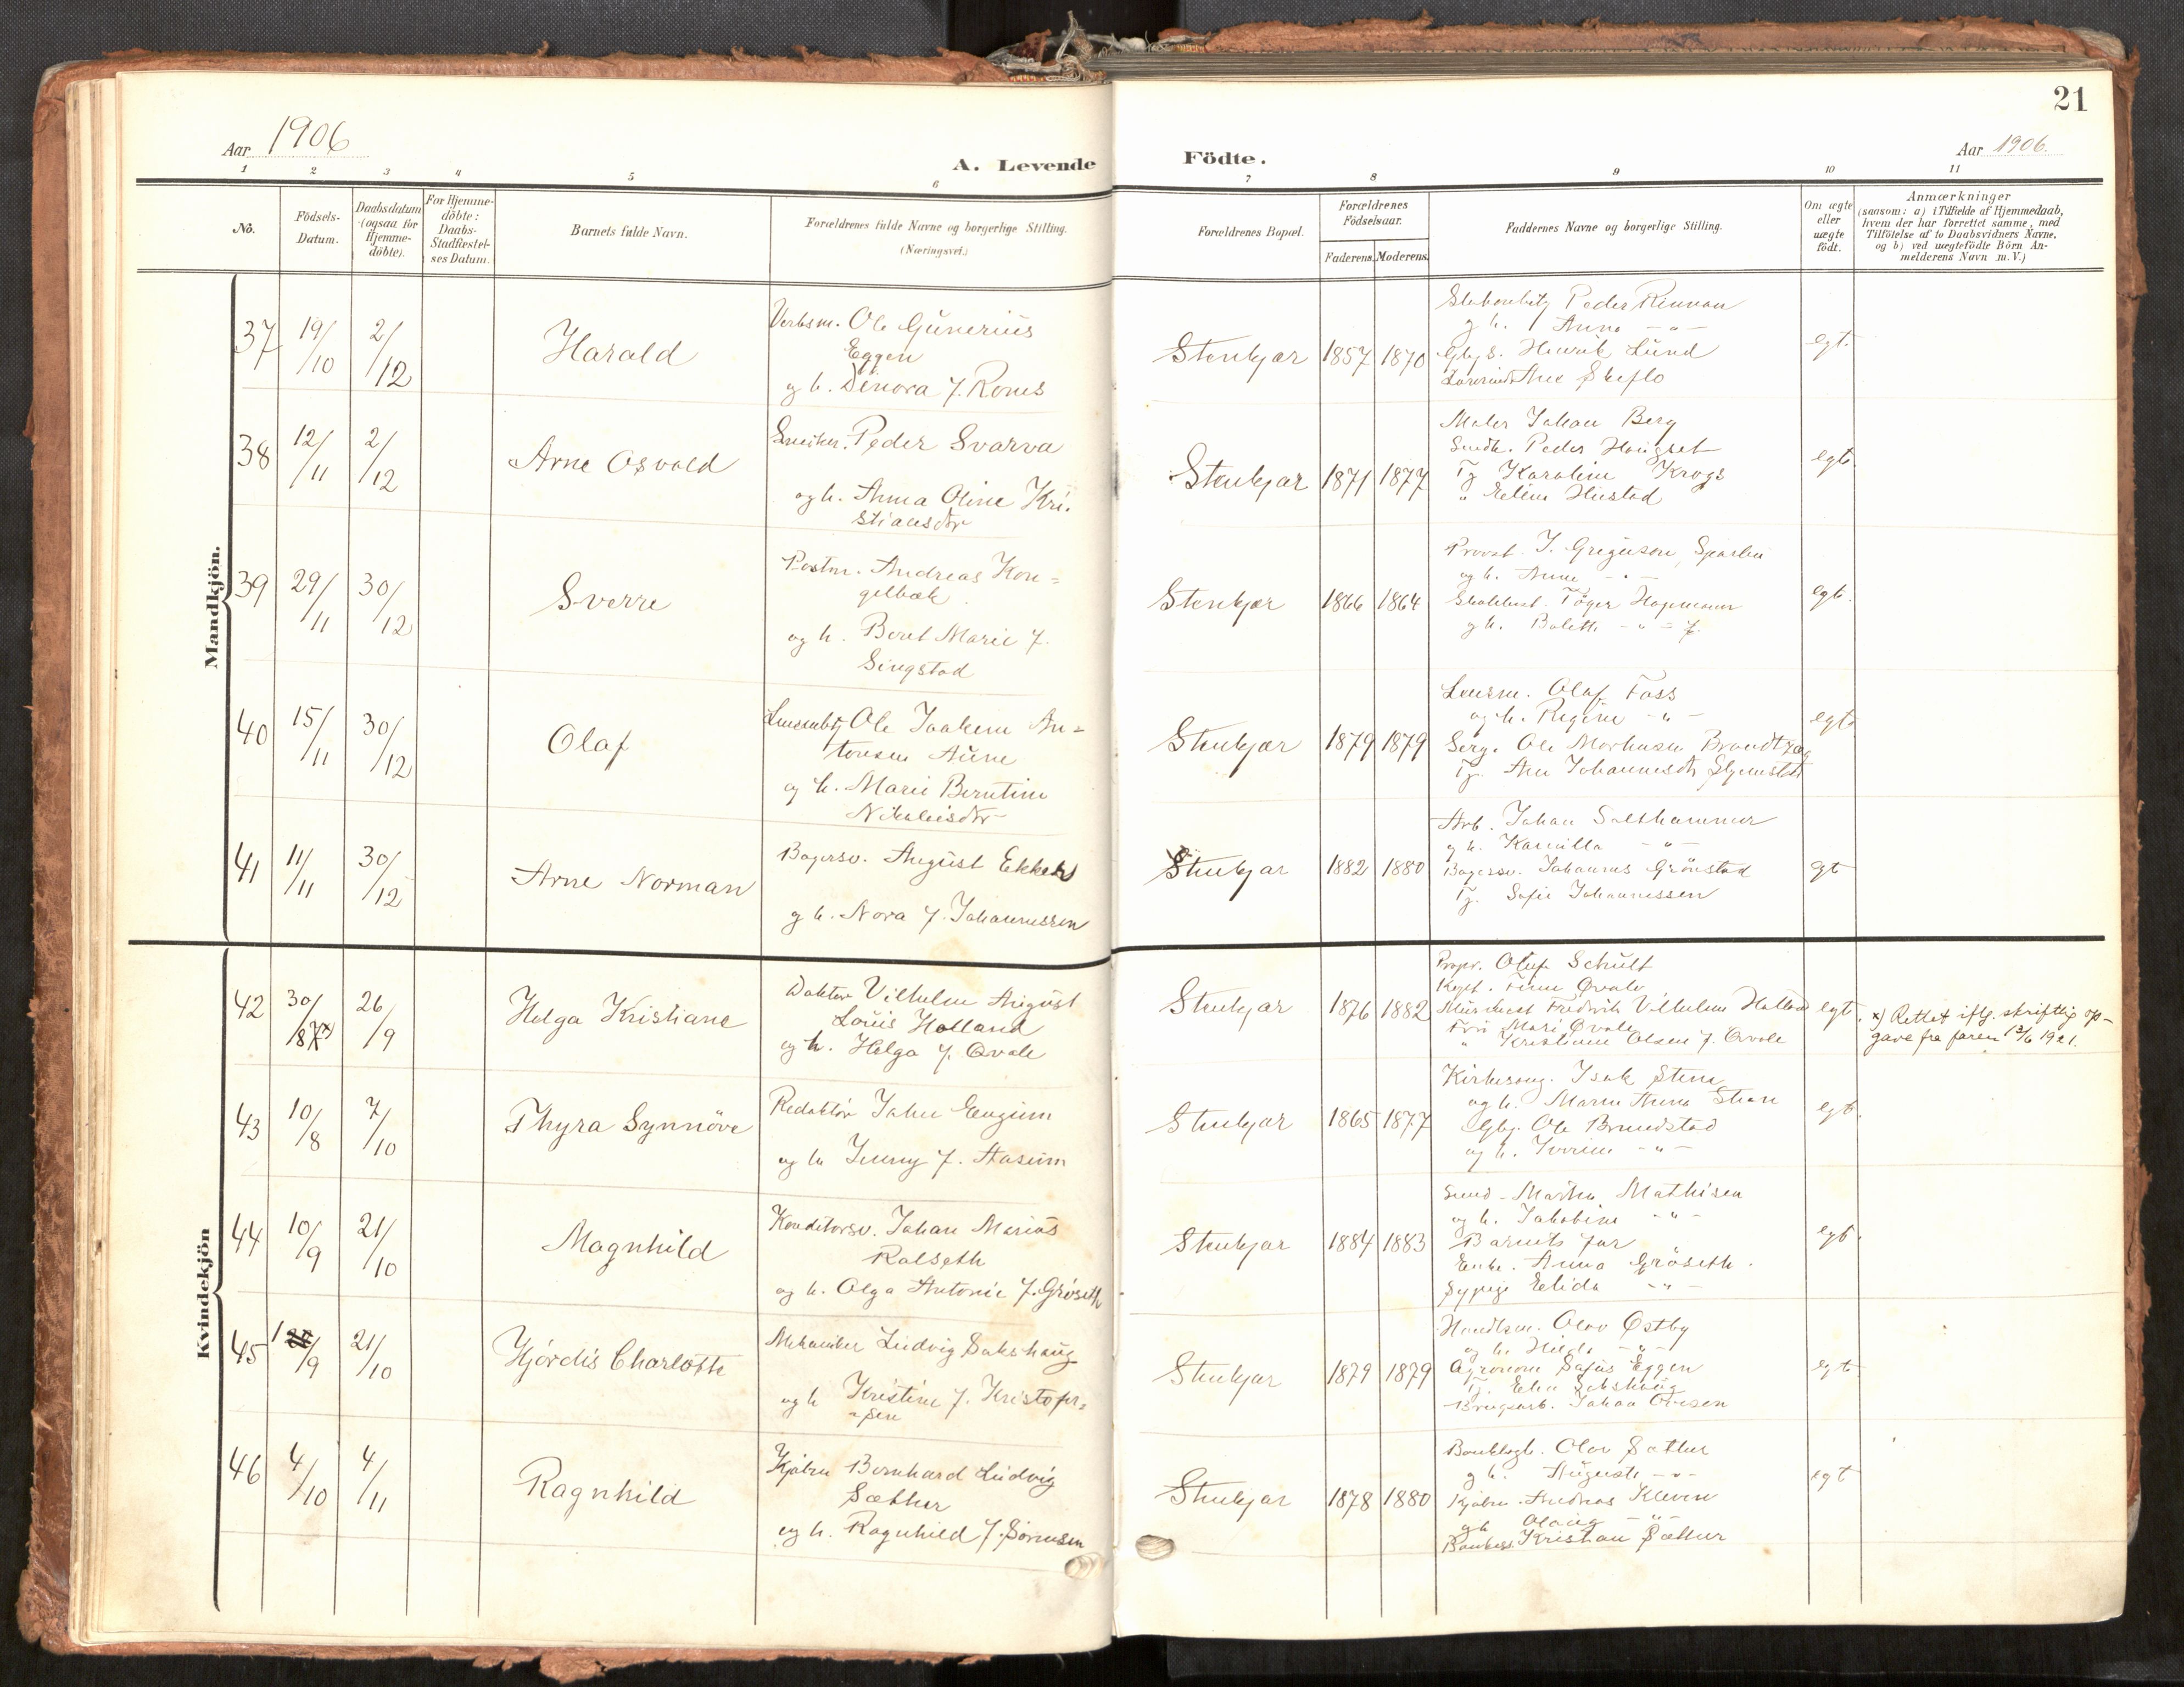 21
Aar 1906
A. Levende
Födte.
Aar 1906.
1 2 3 4 5 6 7 8 9 10 11
No.
Födsels-
Datum.
Daabsdatum
(ogsaa for
Hjemme-
döbte).
For Hjemme-
döbte:
Daabs-
Stadfæstel-
ses Datum.
Barnets fulde Navn.
Forældrenes fulde Navne og borgerlige Stilling.
(Næringsvei.)
Forældrenes Bopæl.
Forældrenes
Födselsaar.
Faderens. Moderens.
Faddernes Navne og borgerlige Stilling.
Om ægte
eller
uægte
födt.
Anmærkninger
(saasom: a) i Tilfælde af Hjemmedaab,
hvem der har forrettet samme, med
Tilföielse af to Daabsvidners Navne,
og b) ved uægtefödte Börn An-
melderens Navn m. V.)
Mandkjön.
37 19/10 2/12 Harald
Verksm. Ole Gunerius
Eggen
og h. Denora f. Romes
Stenkjær 1857 1870
Peder Rennan
g h. Anna -"-
Gbgs. Henrik Lund
Ane Skeflo
egt.
38 12/11 2/12 Arne Osvald
Snekker. Peder Svarva
og h. Anna Oline Kri-
stiansdtr
Stenkjær 1871 1877
Maler Johan Berg
Snedk. Peder Haugset
Tj Karoline Krogs
" Eline Hustad
egte
39 29/11 30/12 Sverre
Postm. Andreas Kon=
gelbæk
og h. Beret Marie f.
Singstad
Stenkjær 1866 1864
Provst J. Grigusson, Sparbu
og h. Anne -"-
Töger Hagemann
g h. Bolette -"- f.
egte.
40 15/11 30/12 Olaf
Lensmbtj Ole Joakim An=
tonsen Aune
og h. Marie Berntine
Nikolaisdtr
Stenkjær 1879 1879
Lensm. Olaf Foss
og h. Regine -"-
Serg. Ole Morkusen Brandtzæg
Tj. Ane Johannesdtr
egte
41 11/11 30/12 Arne Norman
Bagersv. August Ekker
g h. Nora f. Johannessen
Stenkjær 1882 1880
Arb. Johan Salthammer
g h. Kamilla -"-
Bagersv. Johannes Grönstad
Tj. Sofie Johannessen
egt
Kvindekjön
42 30/8 7x) 26/9 Helga Kristiane
Doktor Vilhelm August
Louis Holland
og h. Helga f. Qvale
Stenkjær 1876 1882
Propr. Oluf Schult
Kapt. Finn Qvale
Fredrik Vilhelm Holland
Fru Mari Qvale
" Kristiane Olsen f. Qvale
egt.
x) Rettet iflg. skriftlig op-
gave fra faren 13/6 1921.
43 10/8 7/10 Thyra Synnöve
Redaktör Johu Eugium
og h Jenny f. Aasum
Stenkjær 1865 1877
Kirkesang. Isak Stene
og h. Maren Anna Stene
Gbj. Ole Brundstad
og h. -"-
egt.
44 10/9 21/10 Magnhild
Konditorsv. Johan Marius
Rolseth
og h. Olga Antonie f. Gröseth
Stenkjær 1884 1883
Martin Mathisen
og h. Jakobine -"-
Barnets far
Enke. Anna Gröseth.
Sypige Elida -"-
egt.
45 1/9 21/10 Hjördis Charlotte
Mekaniker Ludvig Sakshaug
og h Kristine f. Kristofer=
sen
Stenkjær 1879 1879
Handlsm. Olav Östby
og h. Hilda -"-
Agronom Sefus Eggen
Tj. Elen Sakshaug
Brugsarb. Johan Ovesen
egt
46 4/10 4/11 Ragnhild
Kjöbm Bernhard Ludvig
Sæther
og h. Ragnhild f. Sörensen
Stenkjær 1878 1880
Bankbogh. Olav Sæther
g h. Auguste -"-
Kjöbm. Andreas Kleven
g h Olaug -"-
Bankass. Kristian Sæther
egt